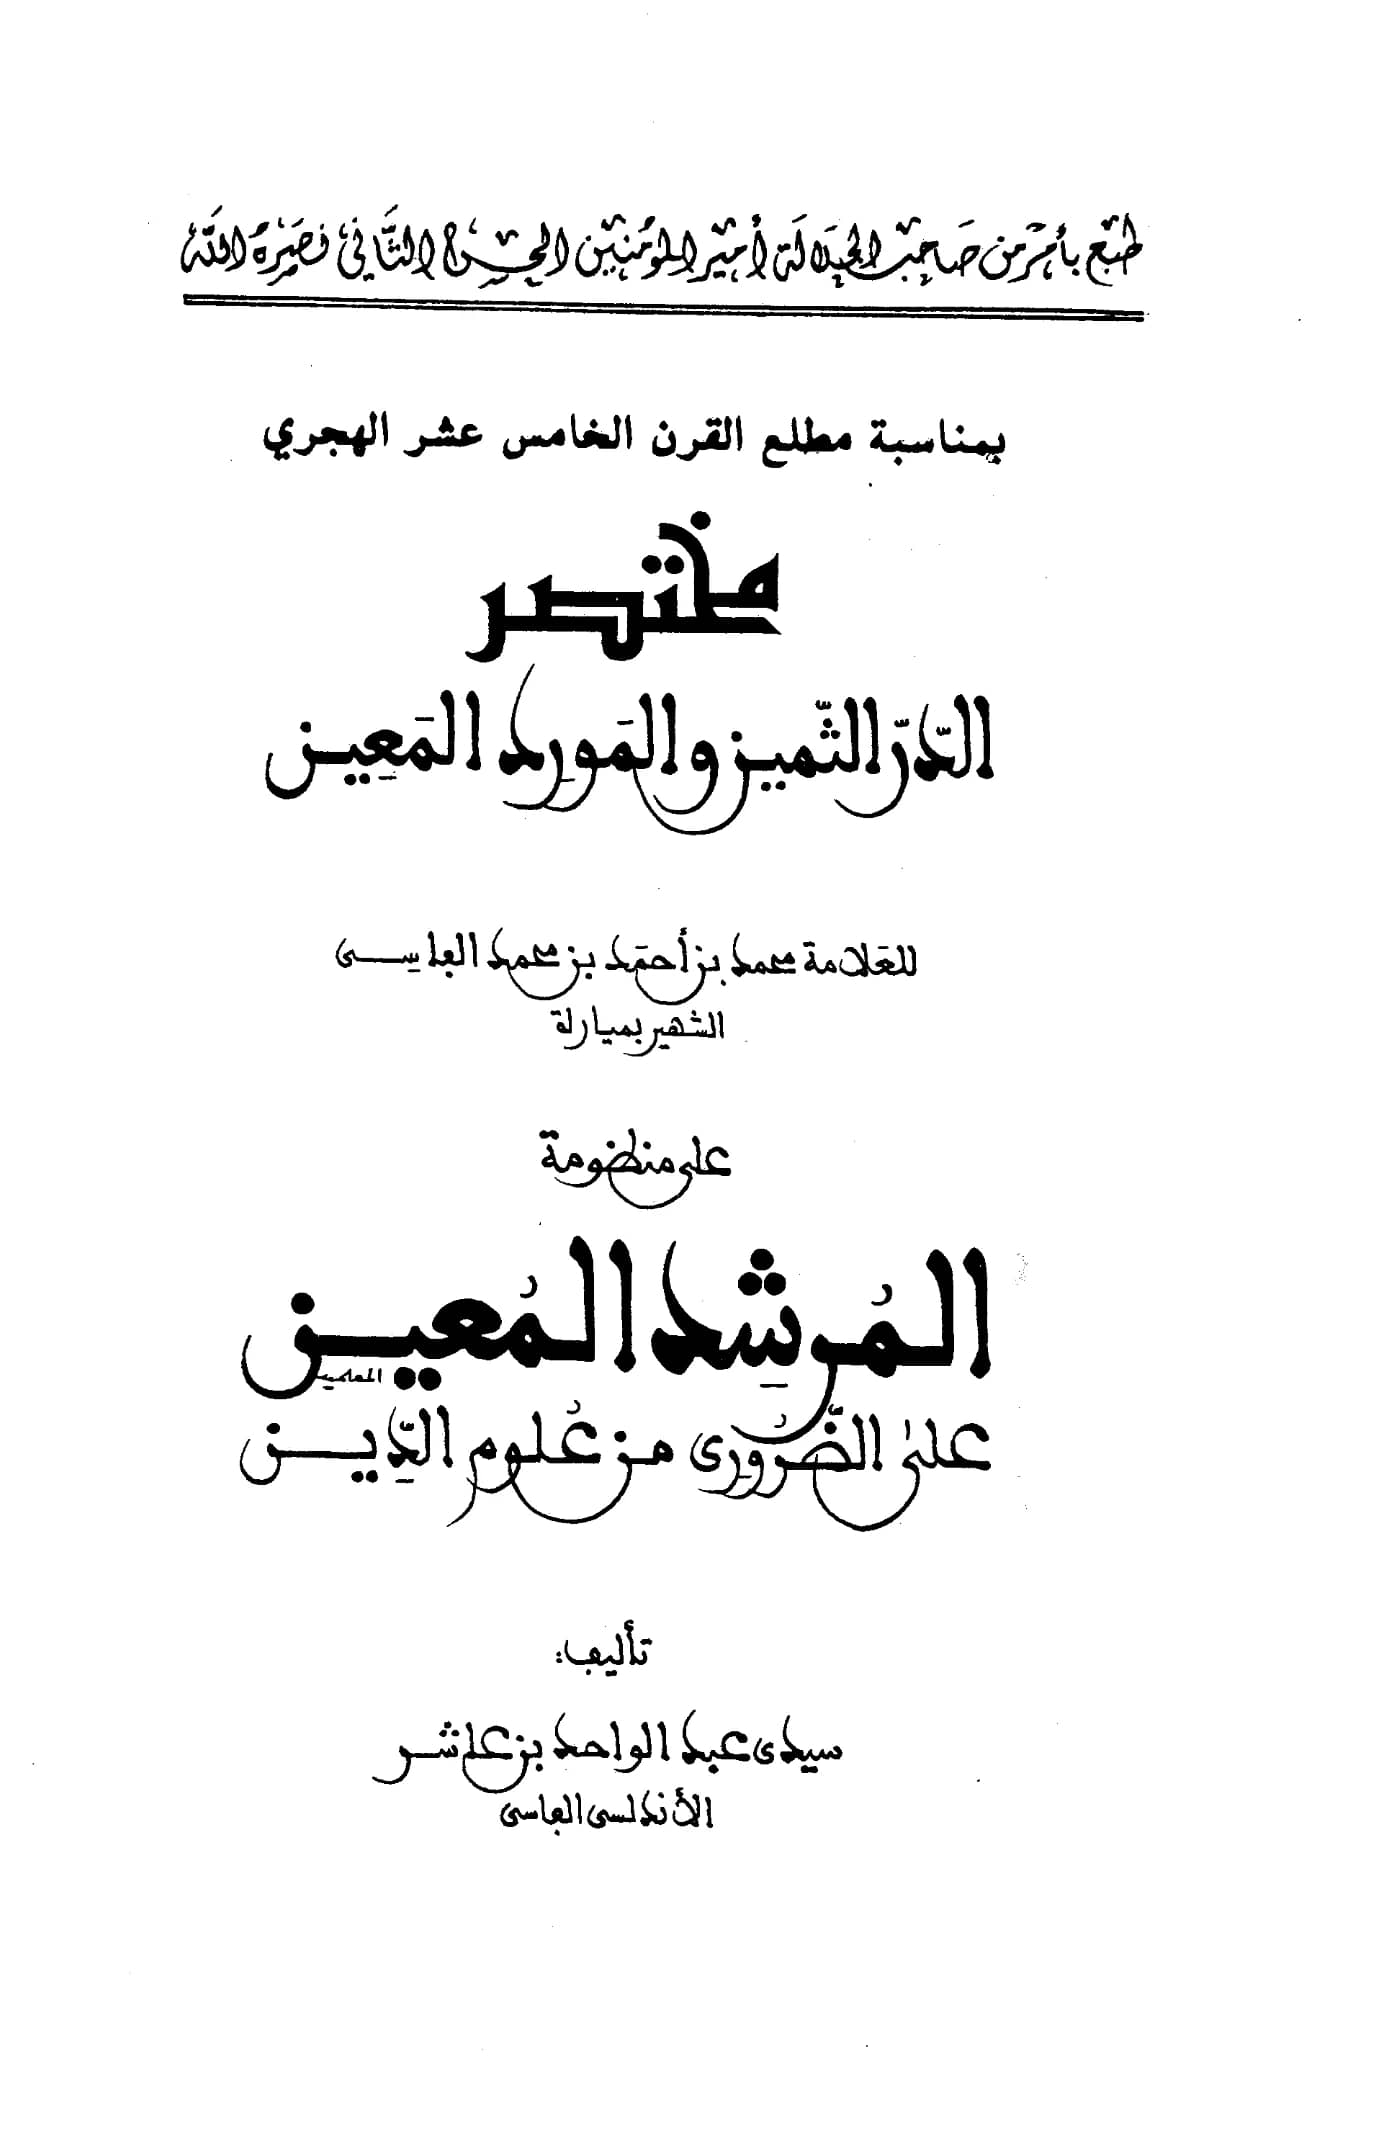 طبع بأمر من صاحب الجلالة أمير المؤمنين الحسن الثاني نصره الله
بمناسبة مطلع القرن الخامس عشر الهجري
مختصر
الدّرّ الثّمين والمَورِد المَعِين
للعَلامة محمد بن أحمَد بن محمد الفاسِى
الشهير بميارة
على منظومة
المُرشِد المُعين
المعلمية
علىٰ الضَّرُورِى من عُلوم الدِّين
تأليف:
سيدى عبد الواحد بن عاشر
الأندلسى الفاسى